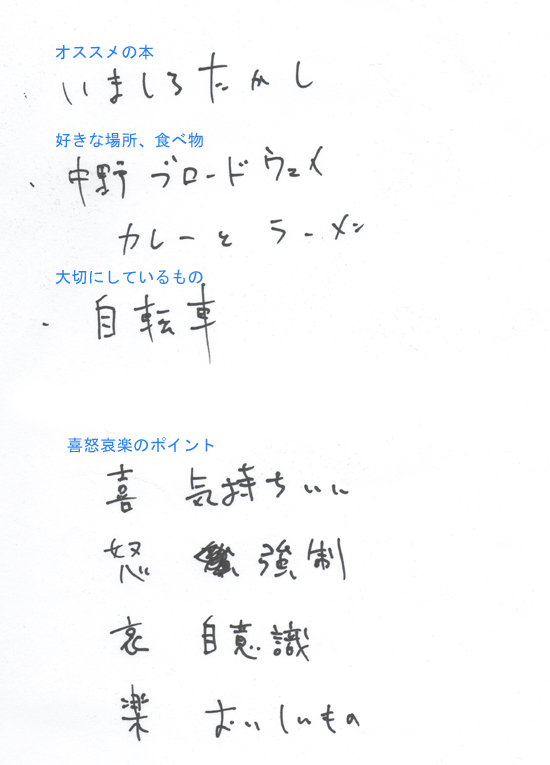 オススメの本
いましろたかし
好きな場所、食べ物
中野ブロードウェイ
カレーと ラーメン
大切にしているもの
自転車
喜怒哀楽のポイント
喜 気持ちいい
怒 強制
哀 自意識
楽 おいしいもの